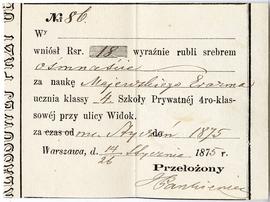 № 86.
W
wniósł Rsr. 18 wyraźnie rubli srebrem
osmnaście
za naukę Majewskiego Erazma
ucznia klassy 4. Szkoły Prywatnéj 4ro-klas-
sowéj przy ulicy Widok.
za czas od Stycznia 1875
Warszawa, d. 14/26 Stycznia 1875 r.
Przełożony
J Pankiewicz